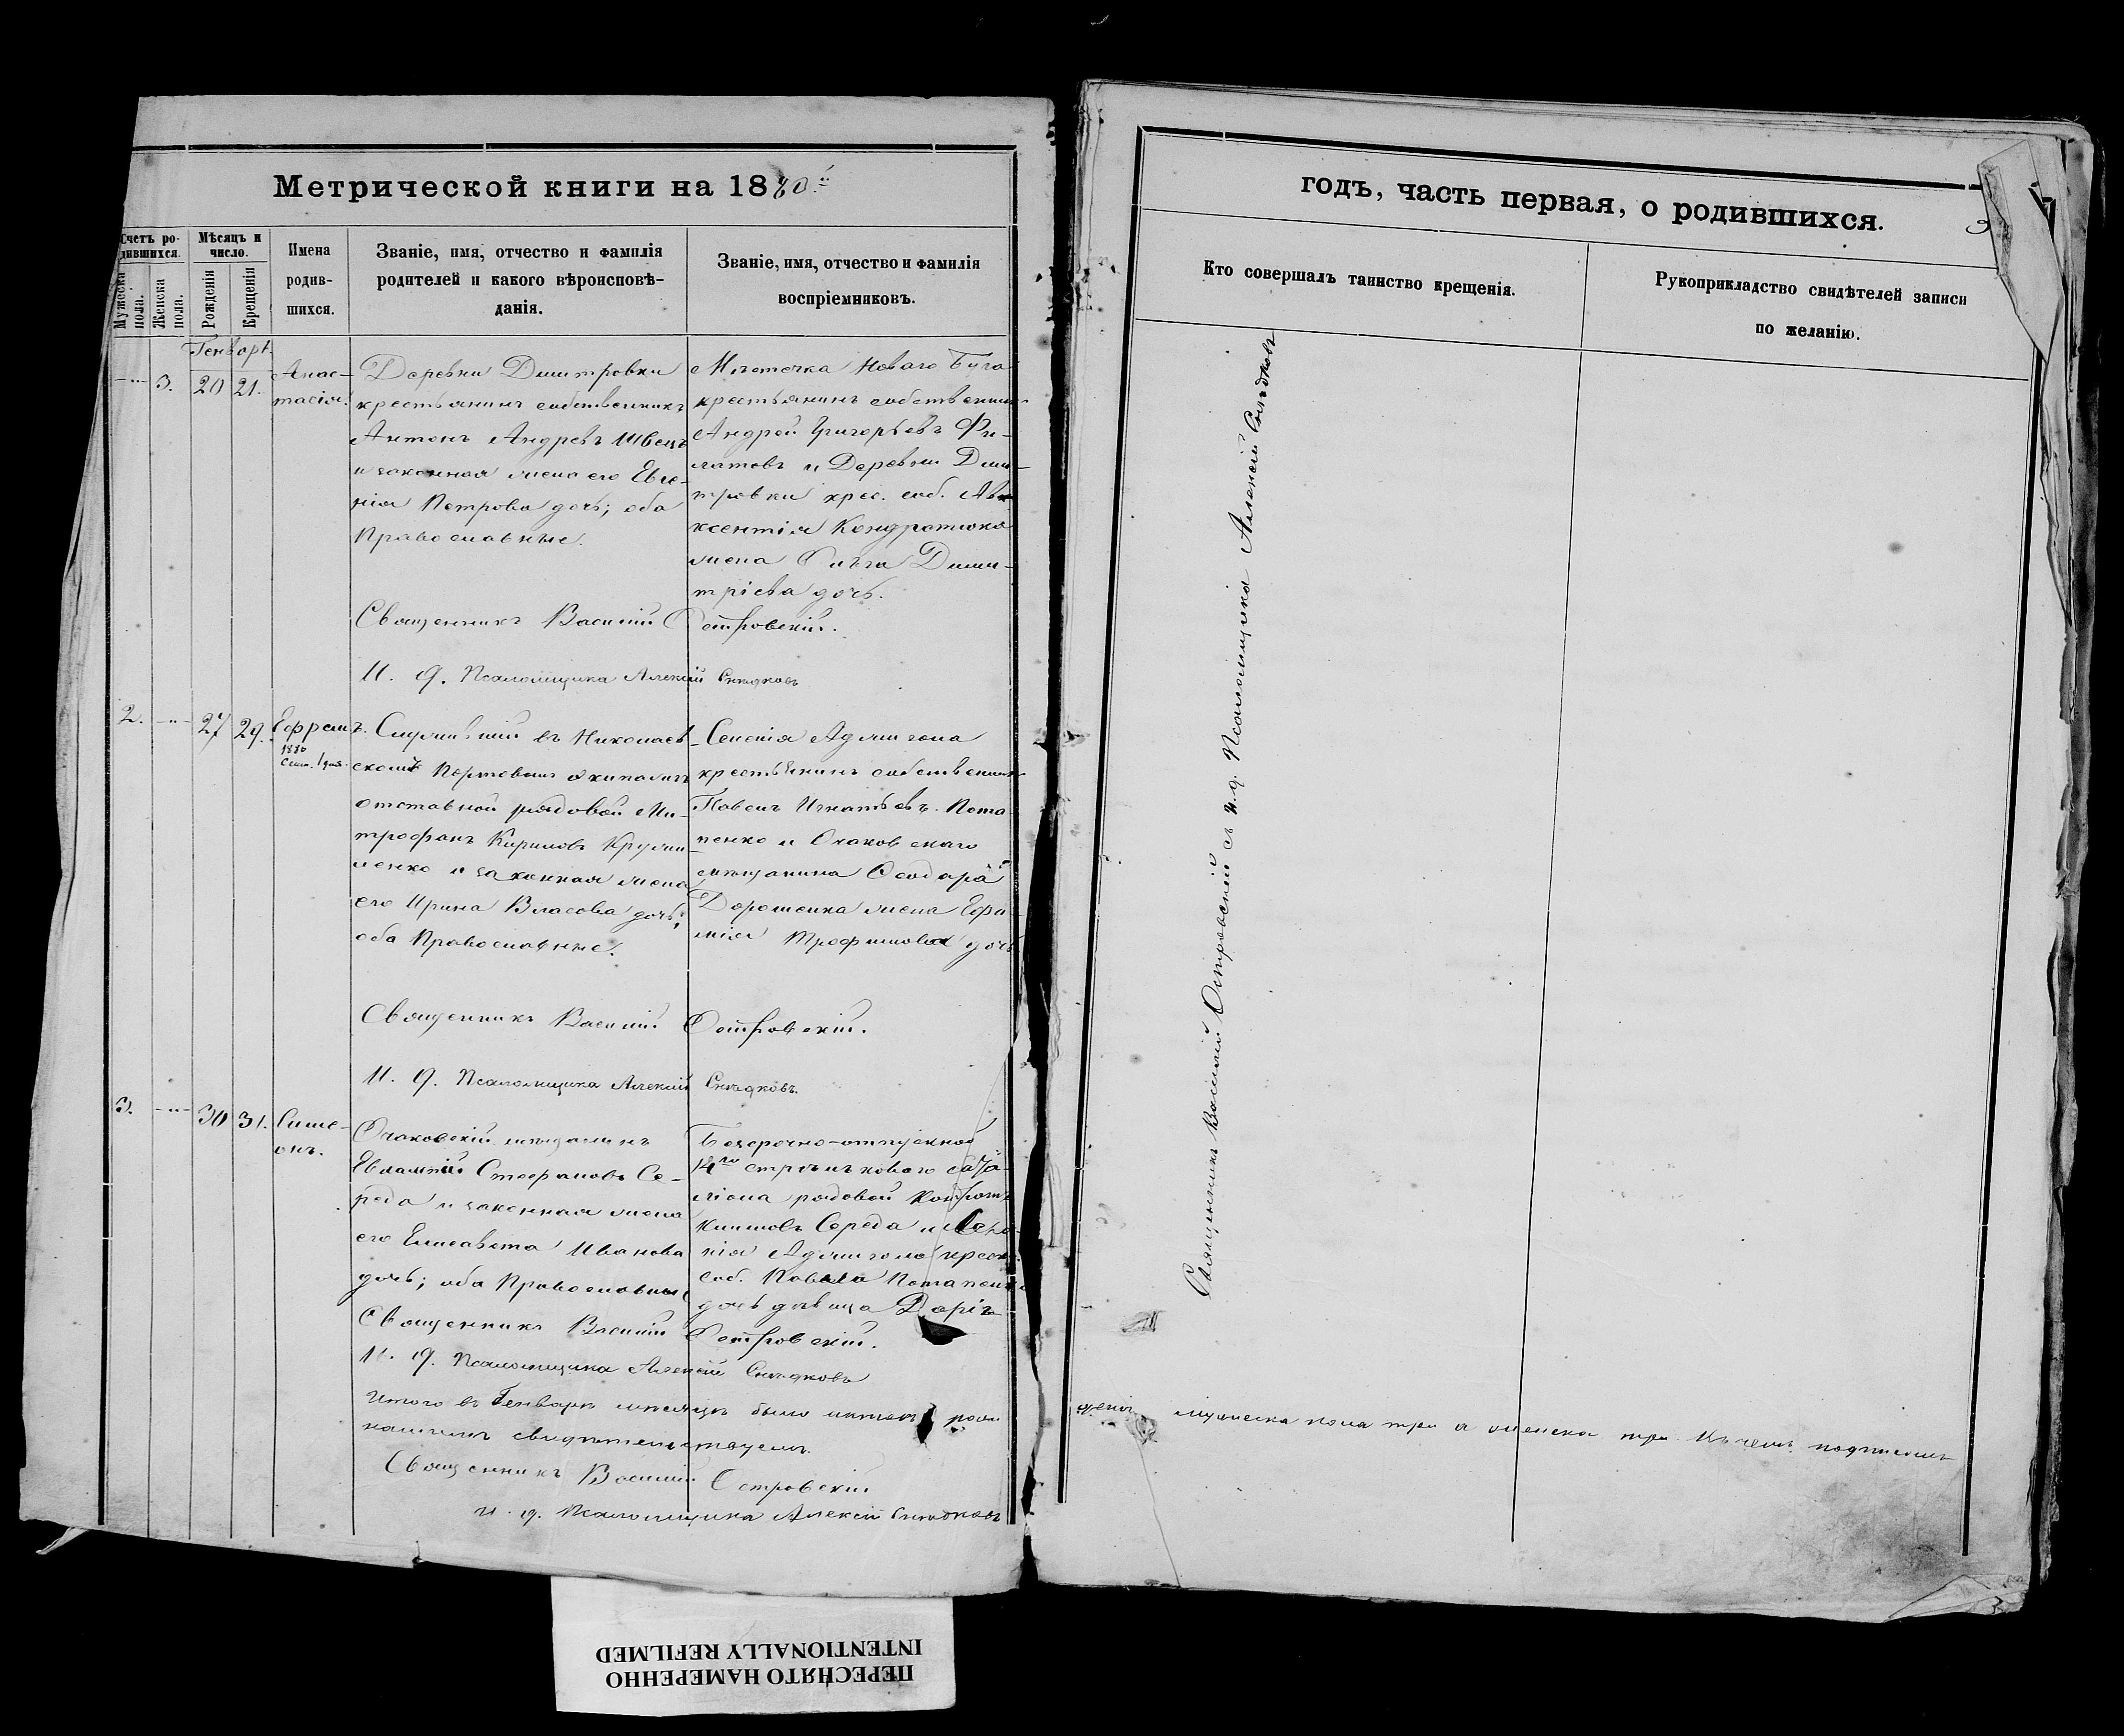 Метрической книги на 1880й
Счетъ ро-
дившихся.
Мужеска
пола.
Женска
пола.
Мѣсяцъ и
число.
Рожденія
Крещенія
Имена
родив-
шихся.
Званіе, имя, отчество и фамилія
родителей и какого вѣроисповѣ-
данія.
Званіе, имя, отчество и фамилія
воспріемниковъ.
Генваря.
3.
20
21.
Анас-
тасія.
Деревни Димитровки
крестьянинъ собственникъ
Антонъ Андреевъ Швецъ
и законная жена его Евге-
нія Петрова дочь; оба
Православные.
Мѣстечка Новаго Буга
крестьянинъ собственникъ
Андрей Григорьевъ Фи-
латовъ и Деревни Дими-
тровки крес. соб. Авк-
ксентія Кондратюка
жена Димит-
тріева дочь.
Священникъ Василій Островскій.
И. д. Псаломщика Алексій
2.
27
29.
Ефремъ.
1880
Служившій въ Николаев-
скомъ Портовомъ экипажѣ
отставной рядовой Ми-
трофанъ Кириловъ
и законная жена
его Ирина Власова дочь;
оба Православные.
крестьянинъ собственникъ
Павелъ Игнатьевъ Пота-
пенко и Очаковскаго
мѣщанина Ѳеодора
Дорошенка жена Ефи-
мія Трофимова дочь
Священникъ Василій Островскій.
И. д. Псаломщика Алексій
3.
30
31.
Симе-
онъ.
Очаковскій мѣщанинъ
Евлампій Стефановъ Се-
реда и законная жена
его Елисавета Иванова
дочь; оба Православные
Безсрочно-отпускной
14го стрѣлковаго бата-
ліона рядовой
Климовъ Середа и
крест.
соб. Павла Потапенко
дочь дѣвица Дарія
Священникъ Василій Островскій.
И. д. Псаломщика Алексій
Итого въ Генварѣ мѣсяцѣ было
свидѣтельствуемъ.
Священникъ Василій Островскій
И. д. Псаломщика Алексій
годъ, часть первая, о родившихся.
3
Кто совершалъ таинство крещенія.
Рукоприкладство свидѣтелей записи
по желанію.
Священникъ Василій Островскій съ и. д. Псаломщика Алексій
мужеска пола три а женска три. Въ чемъ подписомъ
ПЕРЕСНЯТО НАМЕРЕННО
INTENTIONALLY REFILMED